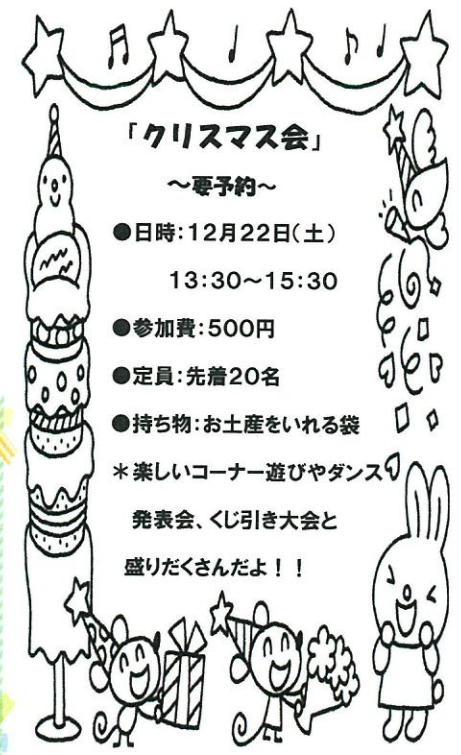 「クリスマス会」
～要予約～
●日時：12月22日（土）
13：30～15：30
●参加費：500円
●定員：先着20名
●持ち物：お土産をいれる袋
＊楽しいコーナー遊びやダンス
発表会、くじ引き大会と
盛りだくさんだよ！！